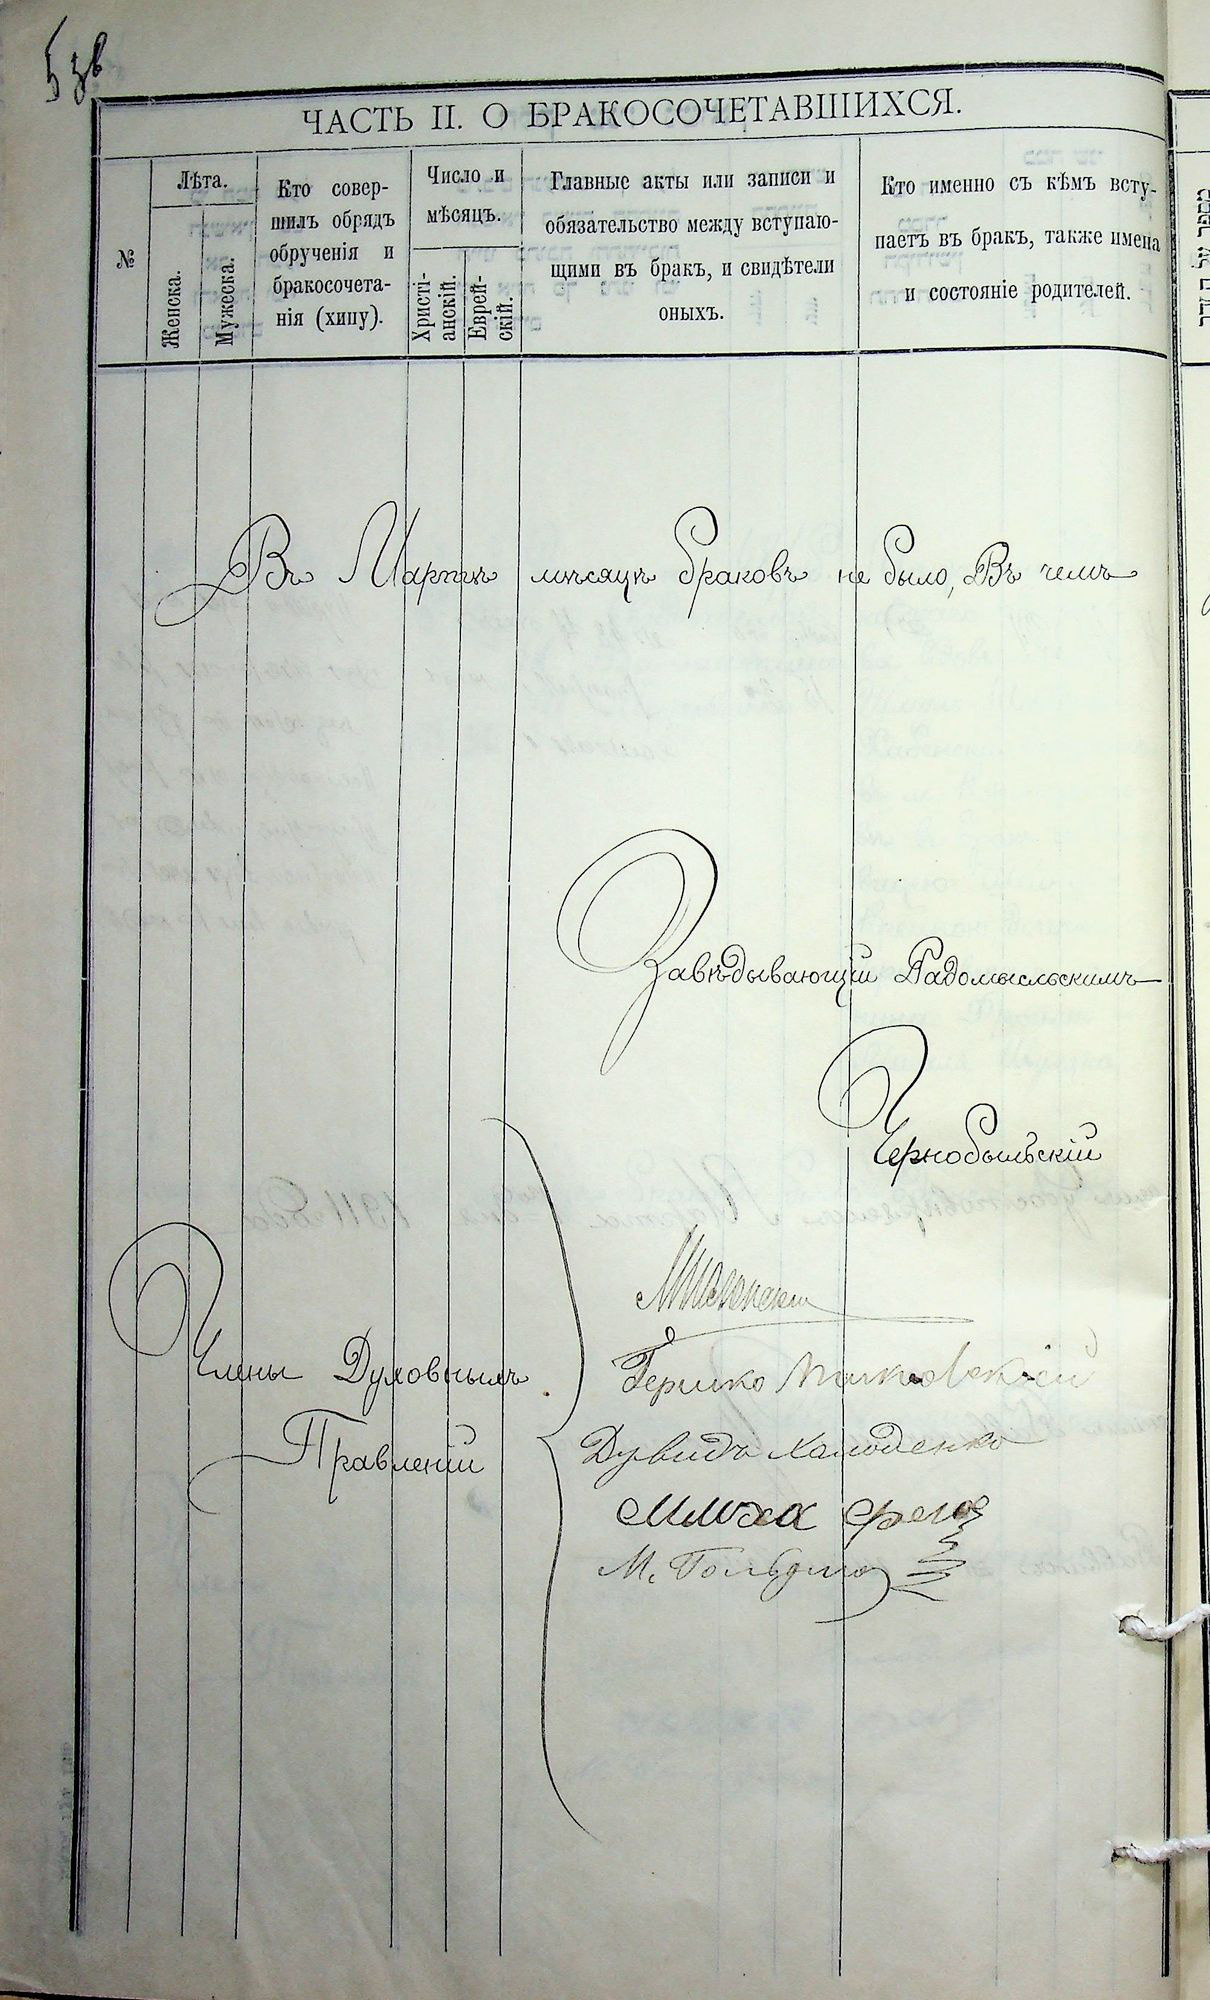 5 зв
ЧАСТЬ II. О БРАКОСОЧЕТАВШИХСЯ.
№
Лѣта.
Женска.
Мужеска.
Кто совер-
шилъ обрядъ
обрученія и
бракосочета-
нія (хипу).
Число и
мѣсяцъ.
Христі-
анскій.
Еврей-
скій.
Главные акты или записи и
обязательство между вступаю-
щими въ бракъ, и свидѣтели
оныхъ.
Кто именно съ кѣмъ всту-
паетъ въ бракъ, также имена
и состояніе родителей.
Въ Мартѣ мѣсяцѣ браковъ не было, Въ чемъ
Завѣдывающій Радомысльскимъ
Чернобыльскій
Члены Духовныхъ
Правленій
Гершко
Дувидъ Халоденко
М. Гольдма